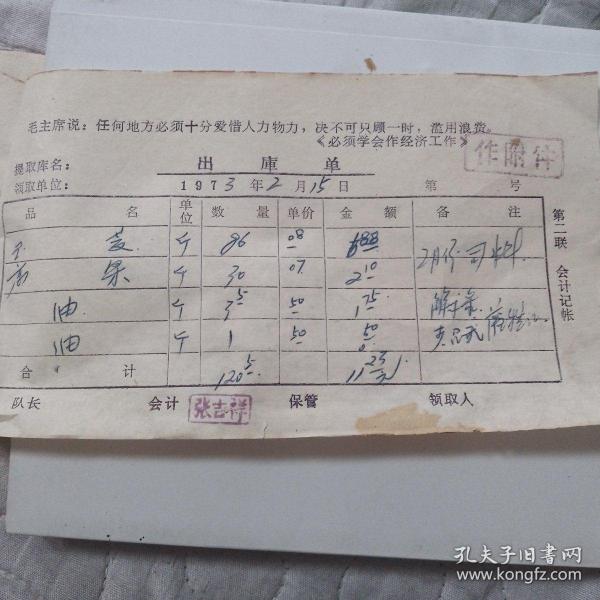 毛主席说：任何地方必须十分爱惜人力物力，决不可只顾一时，滥用浪费。
《必须学会作经济工作》
作附件
出库单
提取库名：
领取单位： 1973年2月15日 第 号
品名 单位 数量 单价 金额 备注
麦 斤 86 08 688 2月份司料
果 斤 30 07 210
油 斤 3 5 50 1 75
油 斤 1 50 50
合计 120 5 11 23
队长 会计 张吉祥 保管 领取人
第二联 会计记帐
孔夫子旧书网
www.kongfz.com